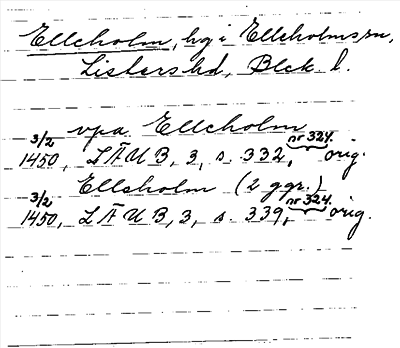 Elleholm, hg i Elleholms sn,
Listers hd, Blek. l.
vpa Elleholm
3/2 1450, LÄUB, 3, s. 332, nr 324. orig.
Elleholm (2 ggr.)
3/2 1450, LÄUB, 3, s. 339, nr 324. orig.